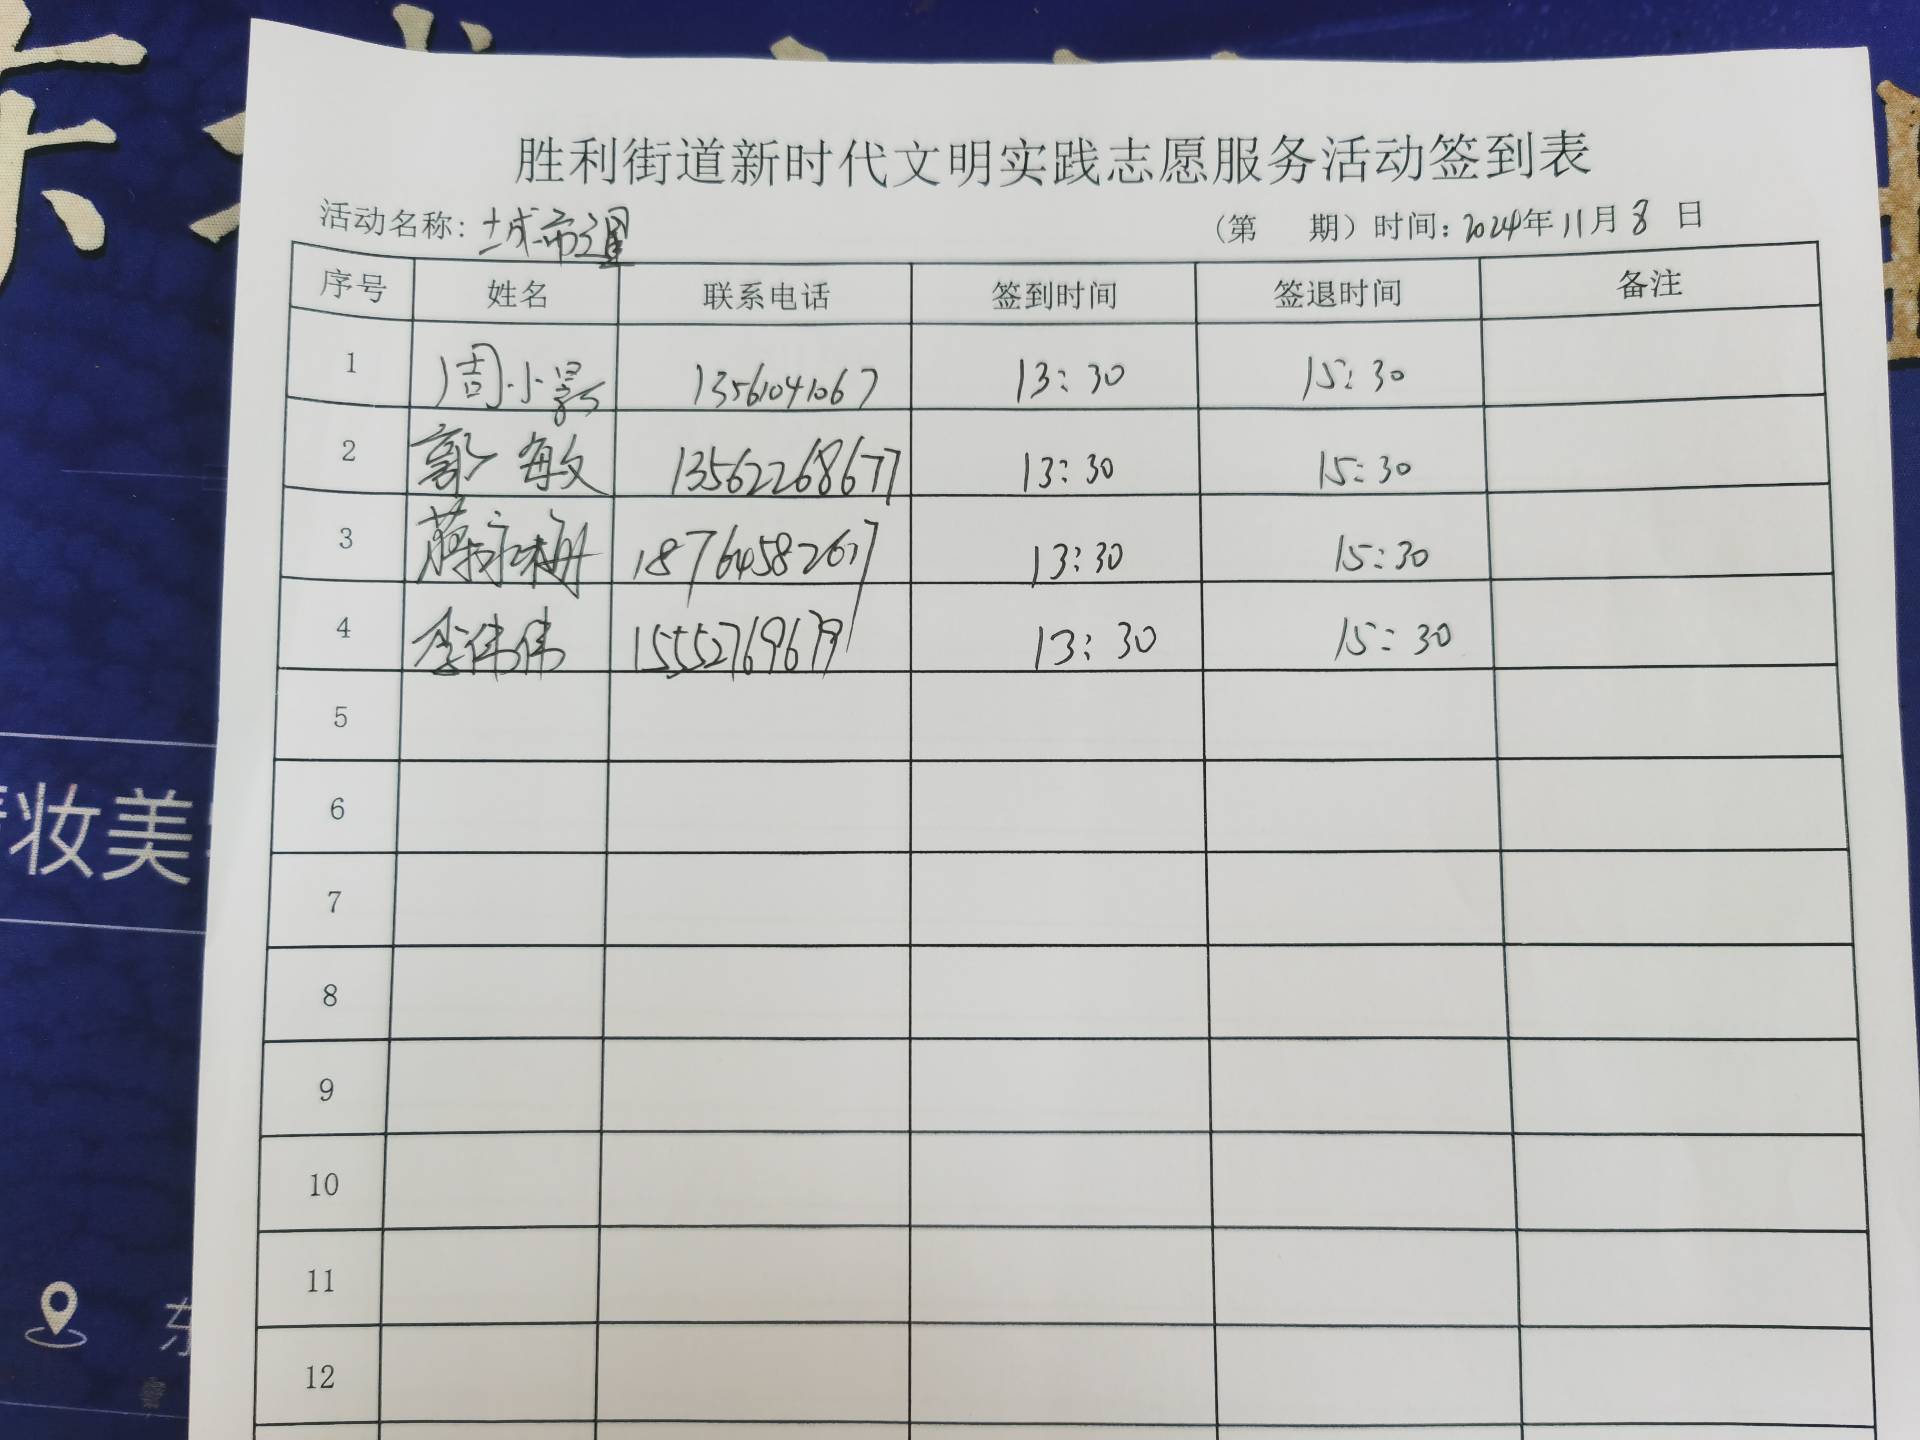 胜利街道新时代文明实践志愿服务活动签到表
活动名称：城市通 （第 期）时间：2024年11月8日
序号 姓名 联系电话 签到时间 签退时间 备注
1 周小影 13561041067 13:30 15:30
2 郭敏 13562268677 13:30 15:30
3 蒋永梅 18764582677 13:30 15:30
4 李伟伟 15552769679 13:30 15:30
5
6
7
8
9
10
11
12
妆美
东